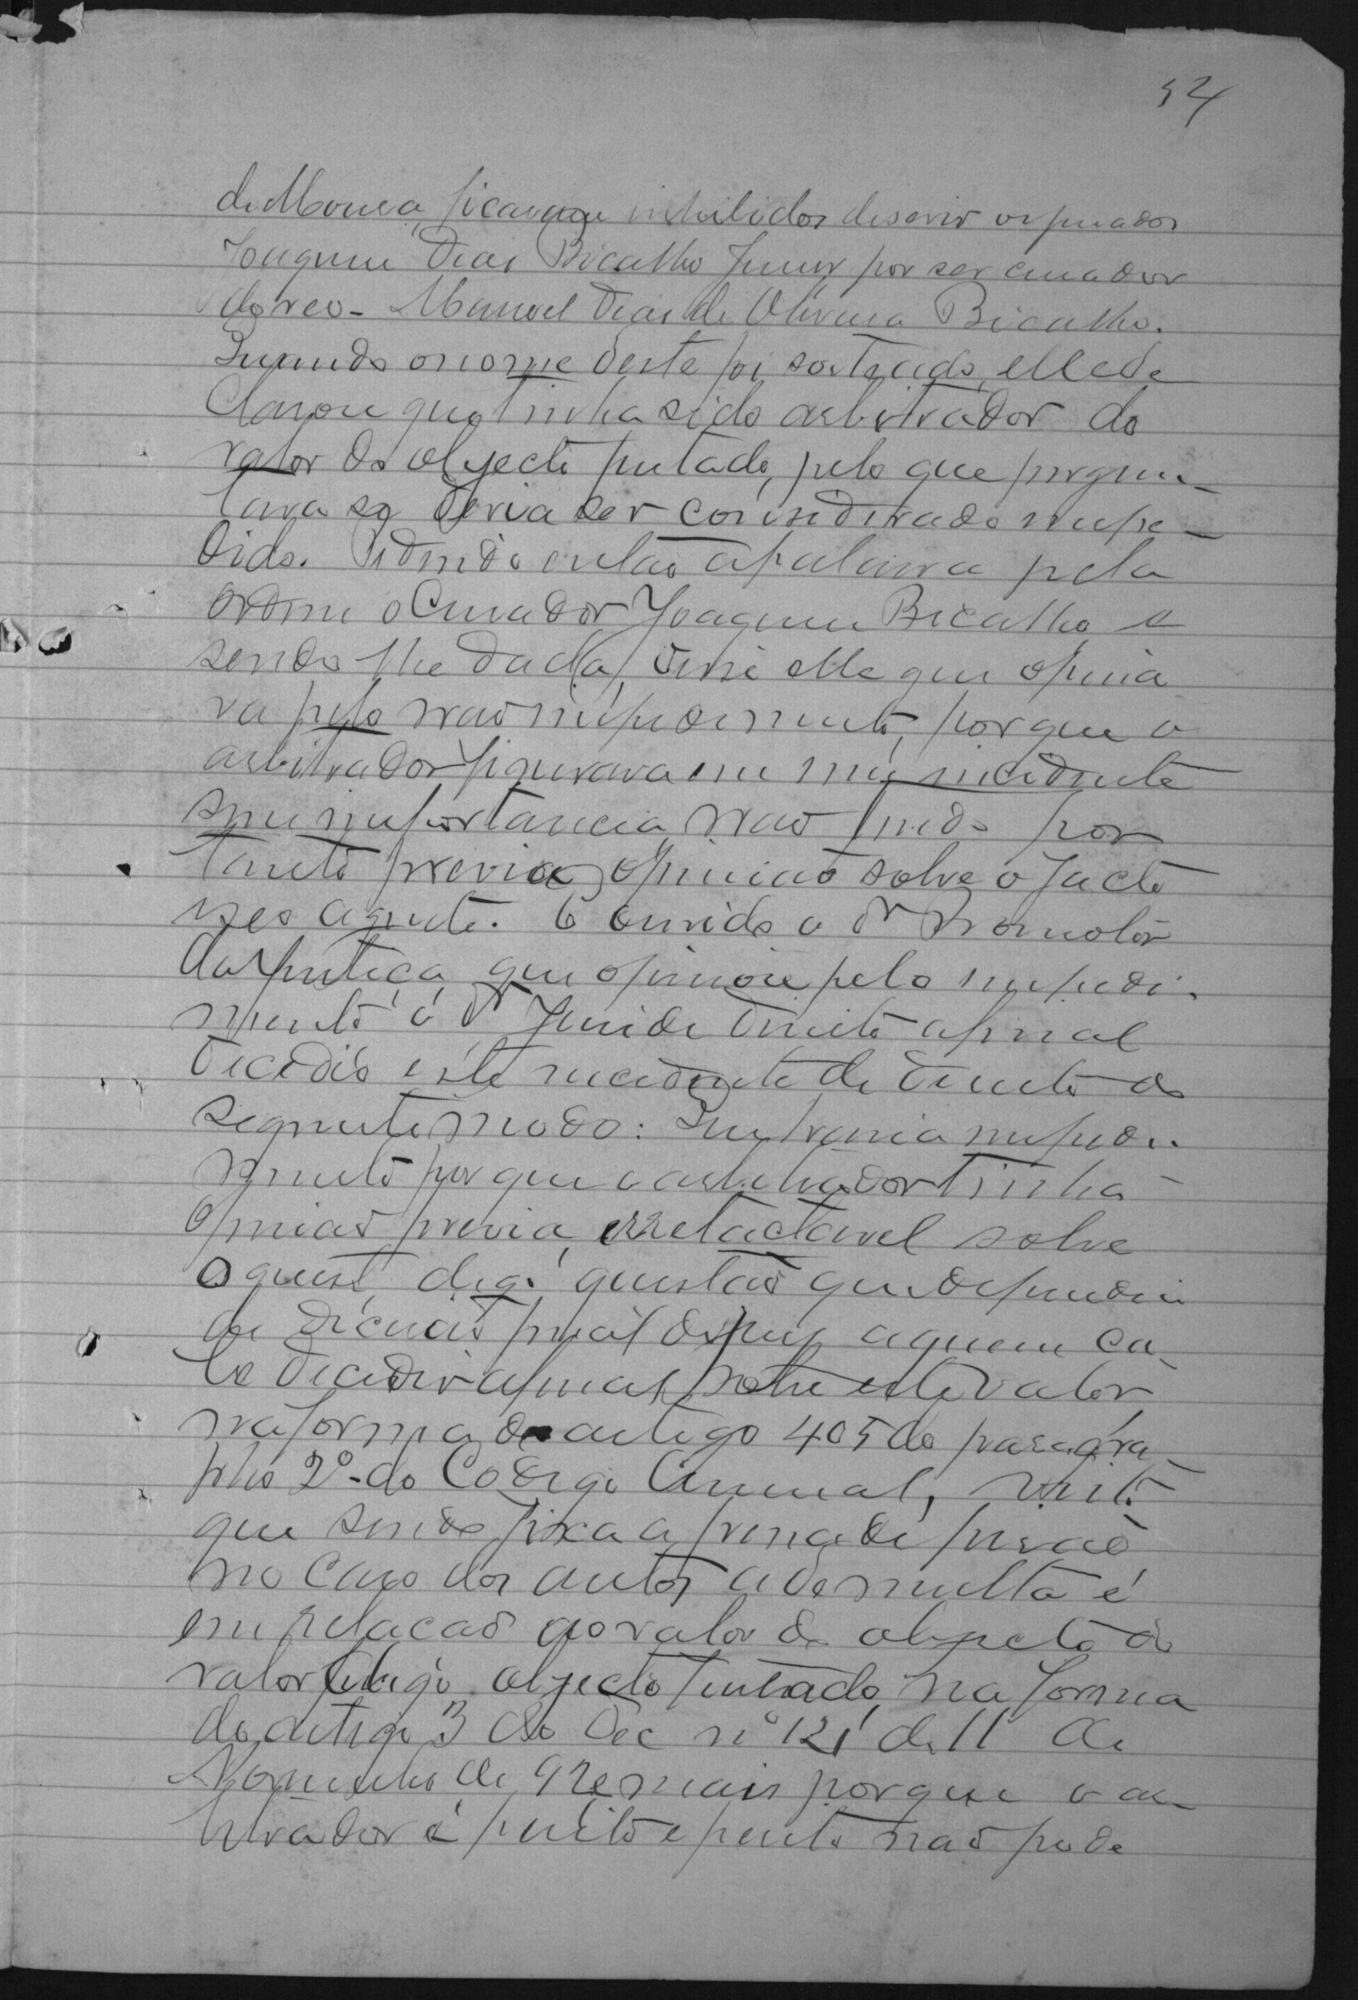 54
de Moura, ficaram inhibidos de servir os jurados
Joaquim Dias Bicalho Junior por ser curador
do reo - Manoel Dias de Oliveira Bicalho.
Quando o nome deste foi sorteado, elle de
clarou que tinha sido arbitrador do
valor do objecto furtado, pelo que pergun-
tava se devia ser considerado impe-
dido. Pedindo então a palavra pela
ordem o Curador Joaquim Bicalho e
sendo lhe dada, disse elle que opina
va pelo não impedimento, porque o
arbitrador figurava em um incidente
sem importancia não tendo por
tanto previa opinião sobre o facto
e seo agente. E ouvido o Dr Promotor
da Justiça que opinou pelo impedi-
mento o Dr Juiz de Direito afinal
decidio este incidente de direito do
seguinte modo: Que havia impedi-
mento por que o arbitrador tinha
opinião previa, irretactavel sobre
a quest, digo, questão que dependia
da decisão final do Jury a quem ca-
be decidir afinal sobre este valor
na forma do artigo 405 do paragra
pho 2º do Codigo Criminal, visto
que sendo fixa a pena de prisão
no caso dos autos a de multa é
em relação ao valor do objecto do
valor digo objecto furtado, na forma
do artigo 3 do Dec nº 121 de 11 de
Novembro de 92 e mais porque o ar-
bitrador é perito e perito não pode